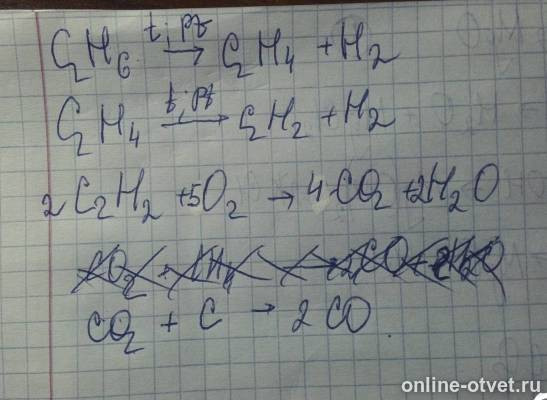 C2H6 t, pt → C2H4 + H2
C2H4 t, pt → C2H2 + H2
2C2H2 + 5O2 → 4CO2 + 2H2O
CO2 + C → 2CO
online-otvet.ru